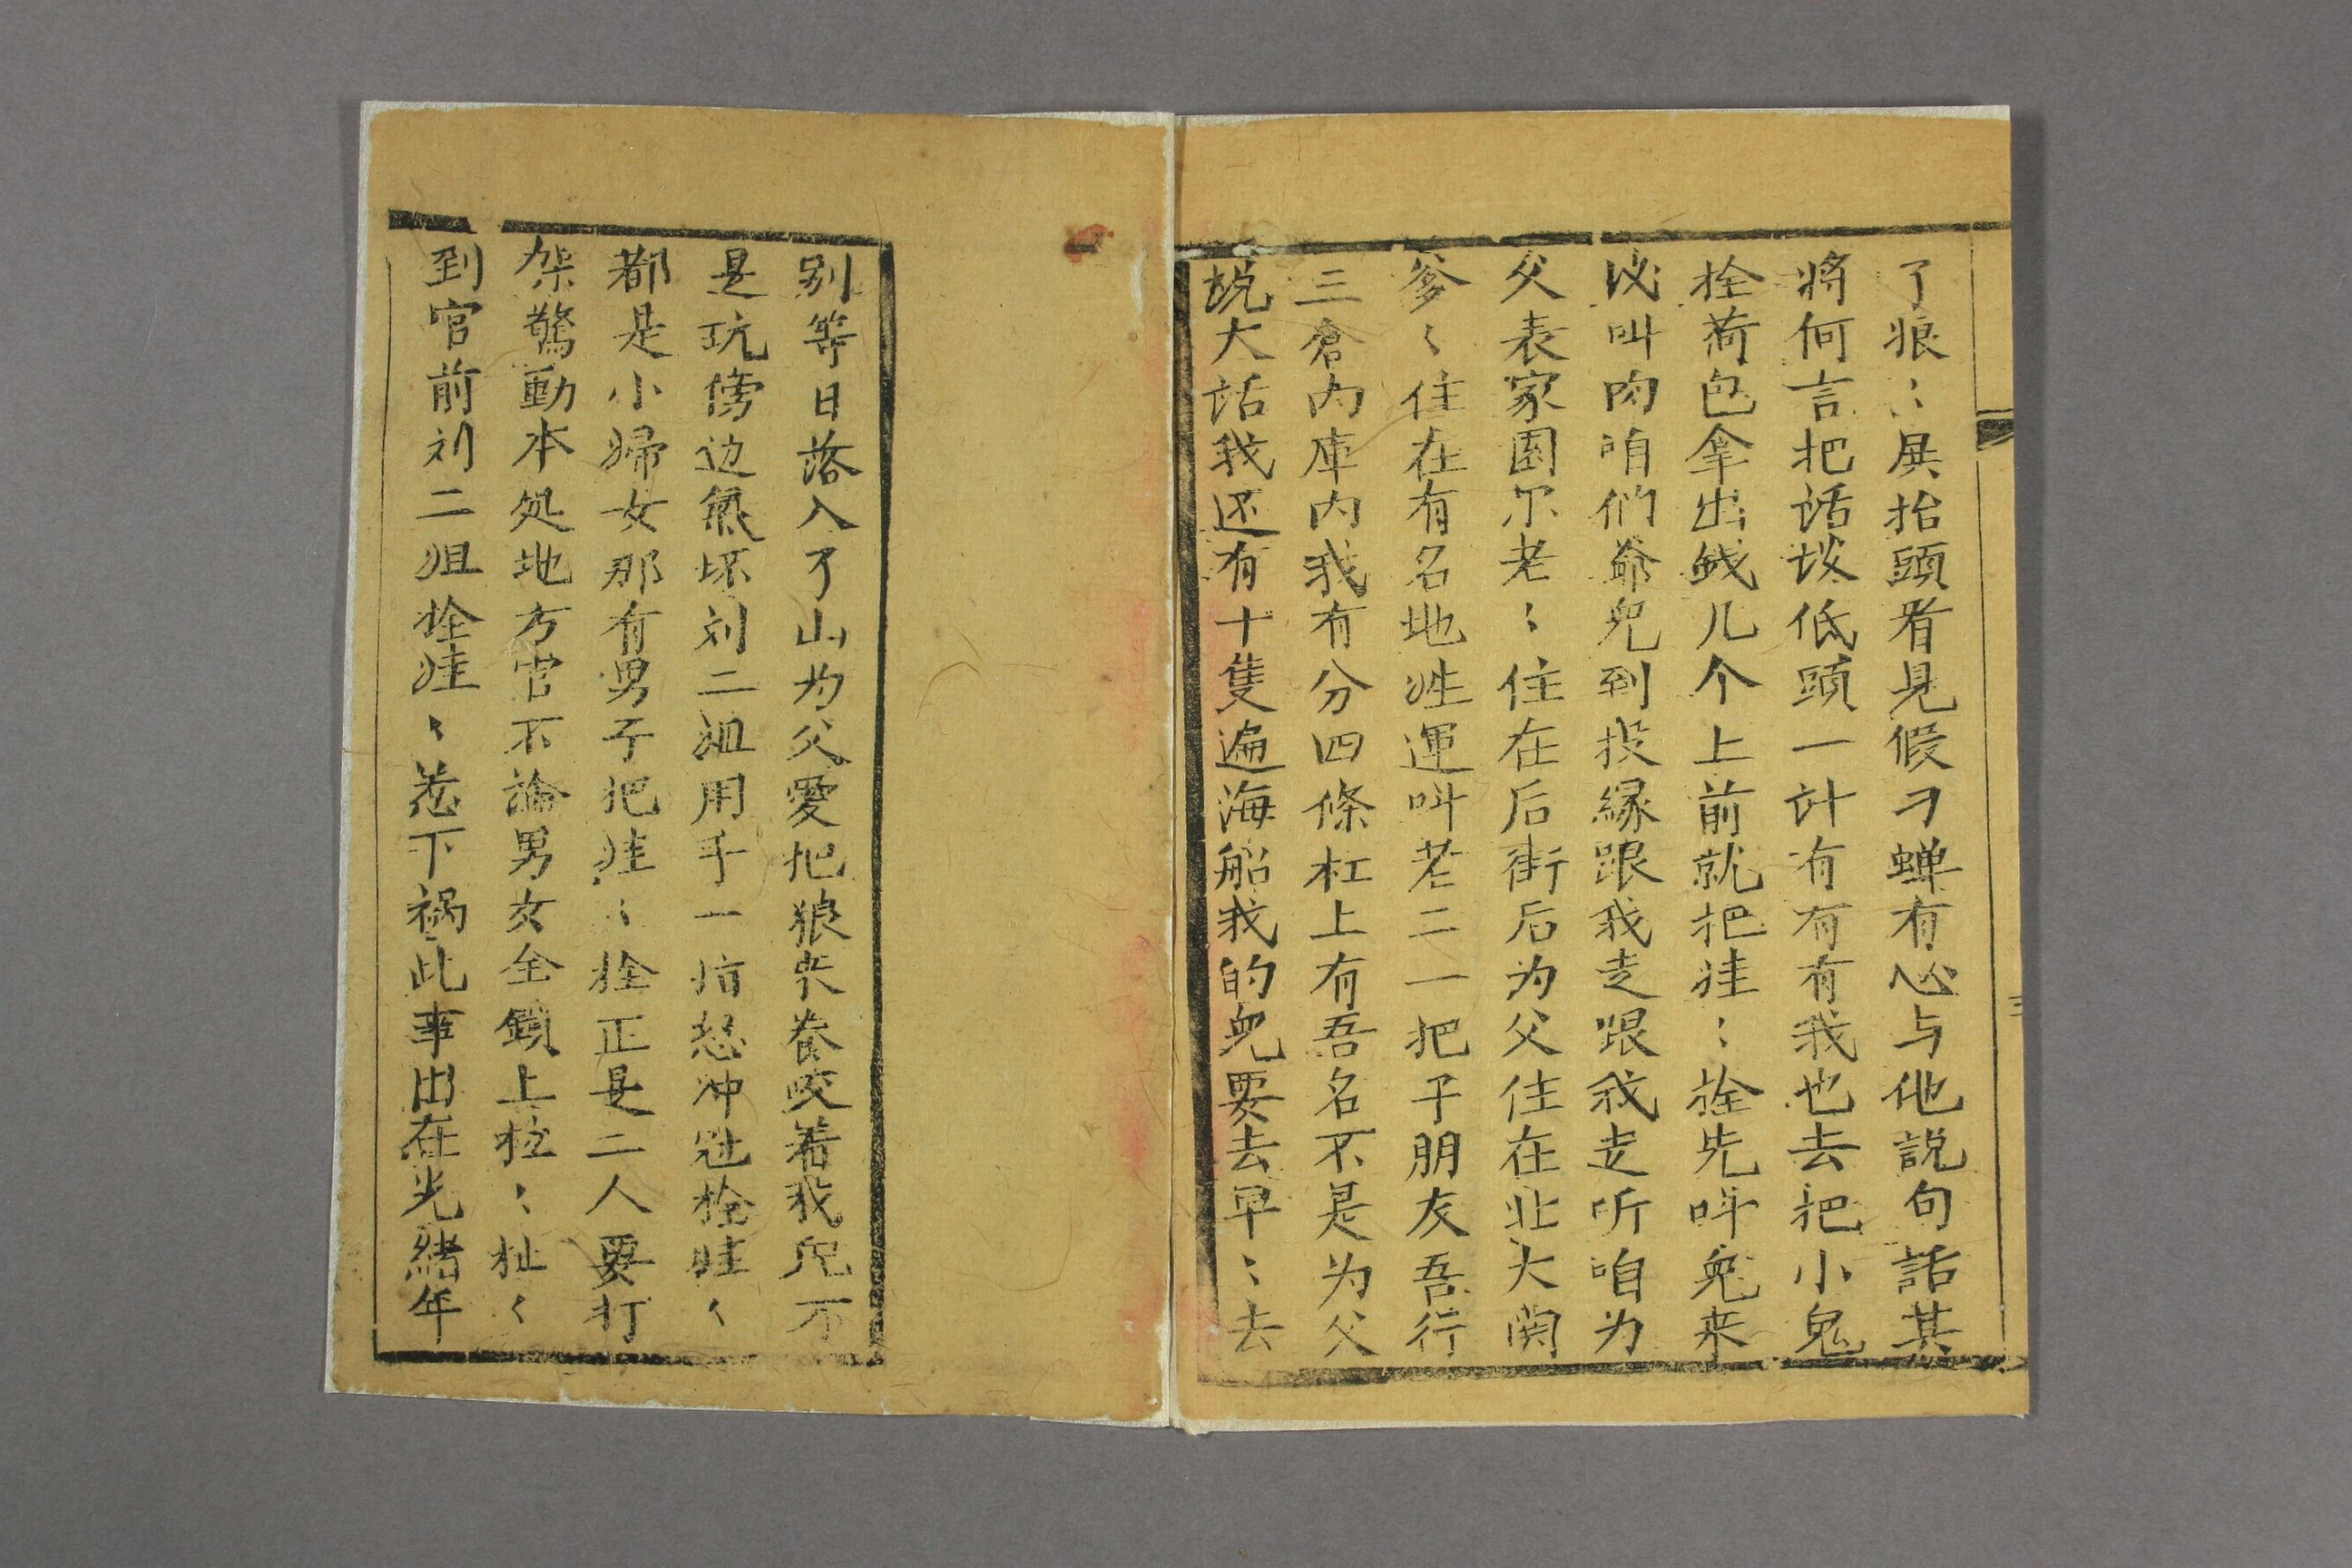 了狼〻屎抬頭看見假刁蝉有心与他説句話其
将何言把话坎低頭一计有有有我也去把小鬼
拴荷包拿出戋几个上前就把娃〻拴先呌兒来
没叫肉咱们爺兒到投縁跟我走跟我走听咱为
父表家园尓老〻住在后街后为父住在北大関
爹〻住在有名地姓運叫老二一把子朋友吾行
三倉内庫内我有分四條杠上有吾名不是为父
説大话我还有十隻遍海船我的兒要去早〻去
别等日落入了山为父愛把狼犬養咬着我兒不
是玩傍边氣坏刘二姐用手一指怒冲冠栓娃〻
都是小婦女那有男子把娃〻拴正是二人要打
架驚動本処地方官不論男女全鎖上拉〻扯〻
到官前刘二姐拴娃〻惹下祸此事出在光緒年
三